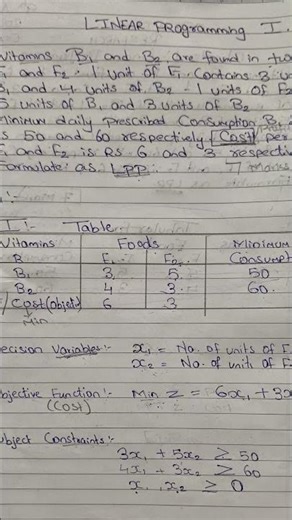 LINEAR Programming I.
Vitamins B₁ and B₂ are found in two
and F₂. 1 unit of F₁ Contains 3 u
B₁ and 4 units of B₂ - 1 units of F₂
5 units of B₁ and 3 units of B₂
Minimum daily Prescribed Consumption B₁
s 50 and 60 respectively Cost per
F₁ and F₂ is RS 6 and 3 respectiv
Formulate as LPP:- 7 Marks
I:- Table
Vitamins Foods Minimum
B F₁ F₂ Consumpt
B₁ 3 5 50
B₂ 4 3 60
Cost(objet) 6 3
Min
Decision Variables:- x₁ = No. of units of F
x₂ = No. of units of F
Objective Function:- Min Z = 6x₁ + 3x
(COST)
Subject Constraints:-
3x₁ + 5x₂ ≥ 50
4x₁ + 3x₂ ≥ 60
x₁, x₂ ≥ 0